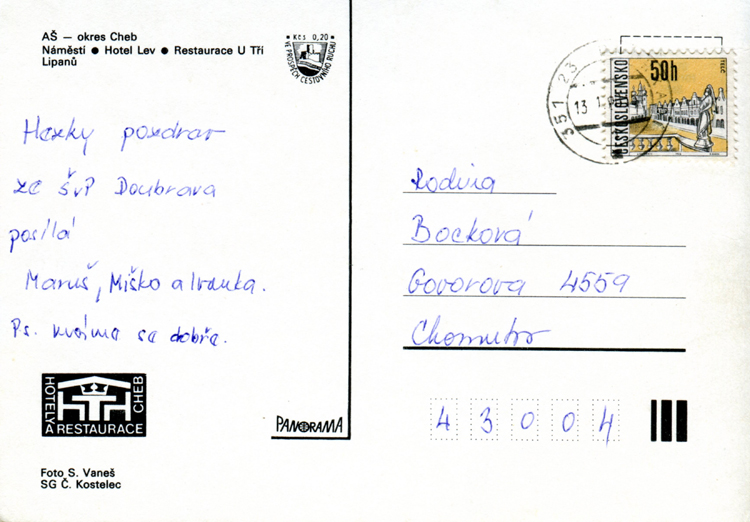 AŠ — okres Cheb
Náměstí ● Hotel Lev ● Restaurace U Tří
Lipanů
Kčs 0,20
VE PROSPĚCH CESTOVNÍHO RUCHU
Hezky pozdrav
ze ŠvP Doubrava
posílá
Maruš, Miško a Ivanka.
Ps. máme sa dobře.
HOTELY A RESTAURACE CHEB
PANORAMA
Foto S. Vaneš
SG Č. Kostelec
351 23
13
50h
ČESKOSLOVENSKO
TELČ
Rodina
Bocková
Govorova 4559
Chomutov
43004